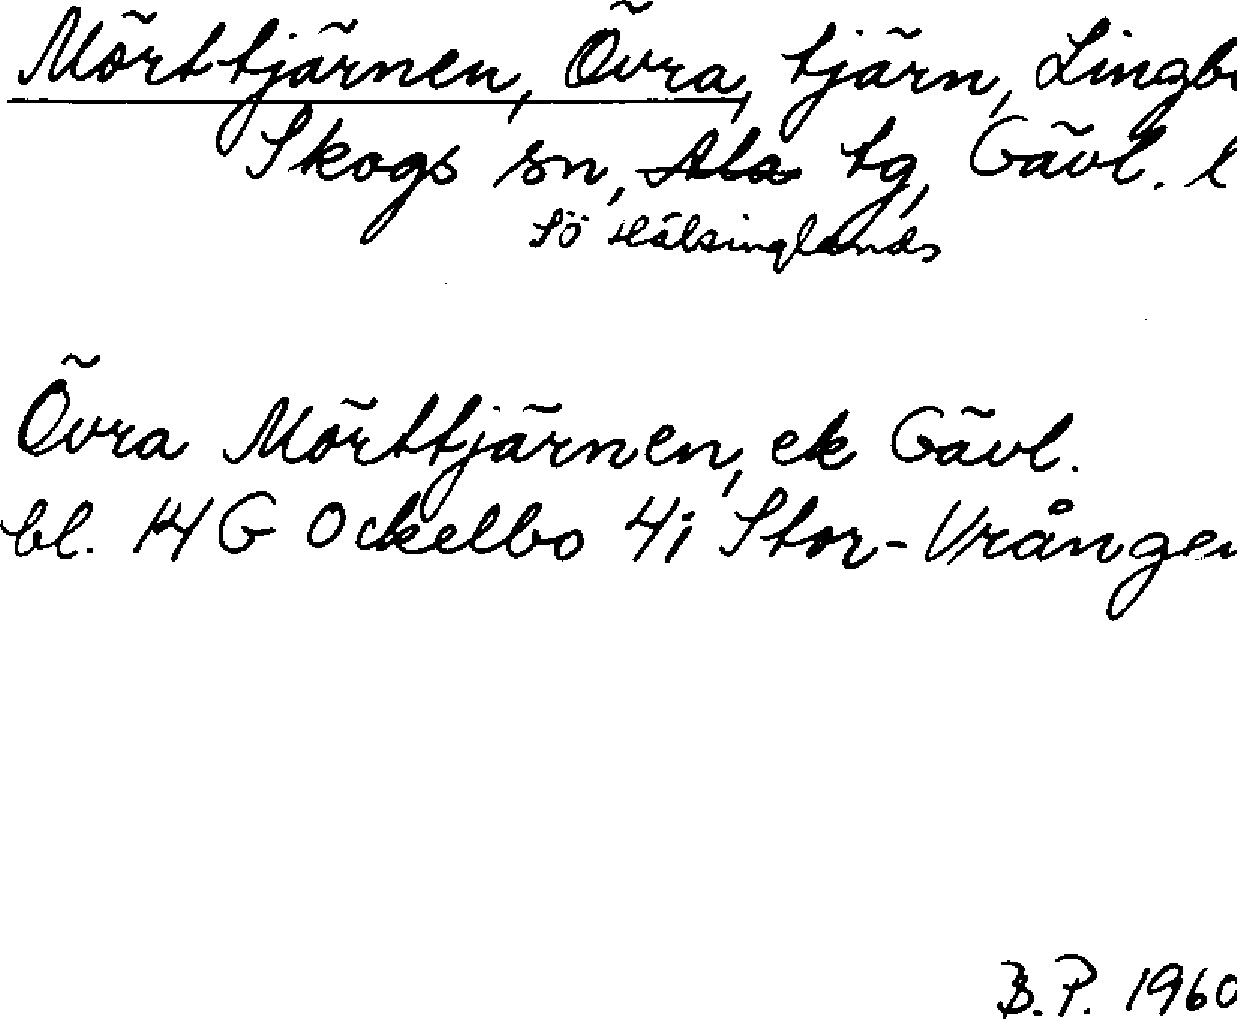 Mörttjärnen, Övra, tjärn, Lingb
Skogs sn, Ala tg, Gävl. l
Sö Hälsinglands
Övra Mörttjärnen, ek Gävl.
bl. 14 G Ockelbo 4i Stor-Vrången
B.P. 1960